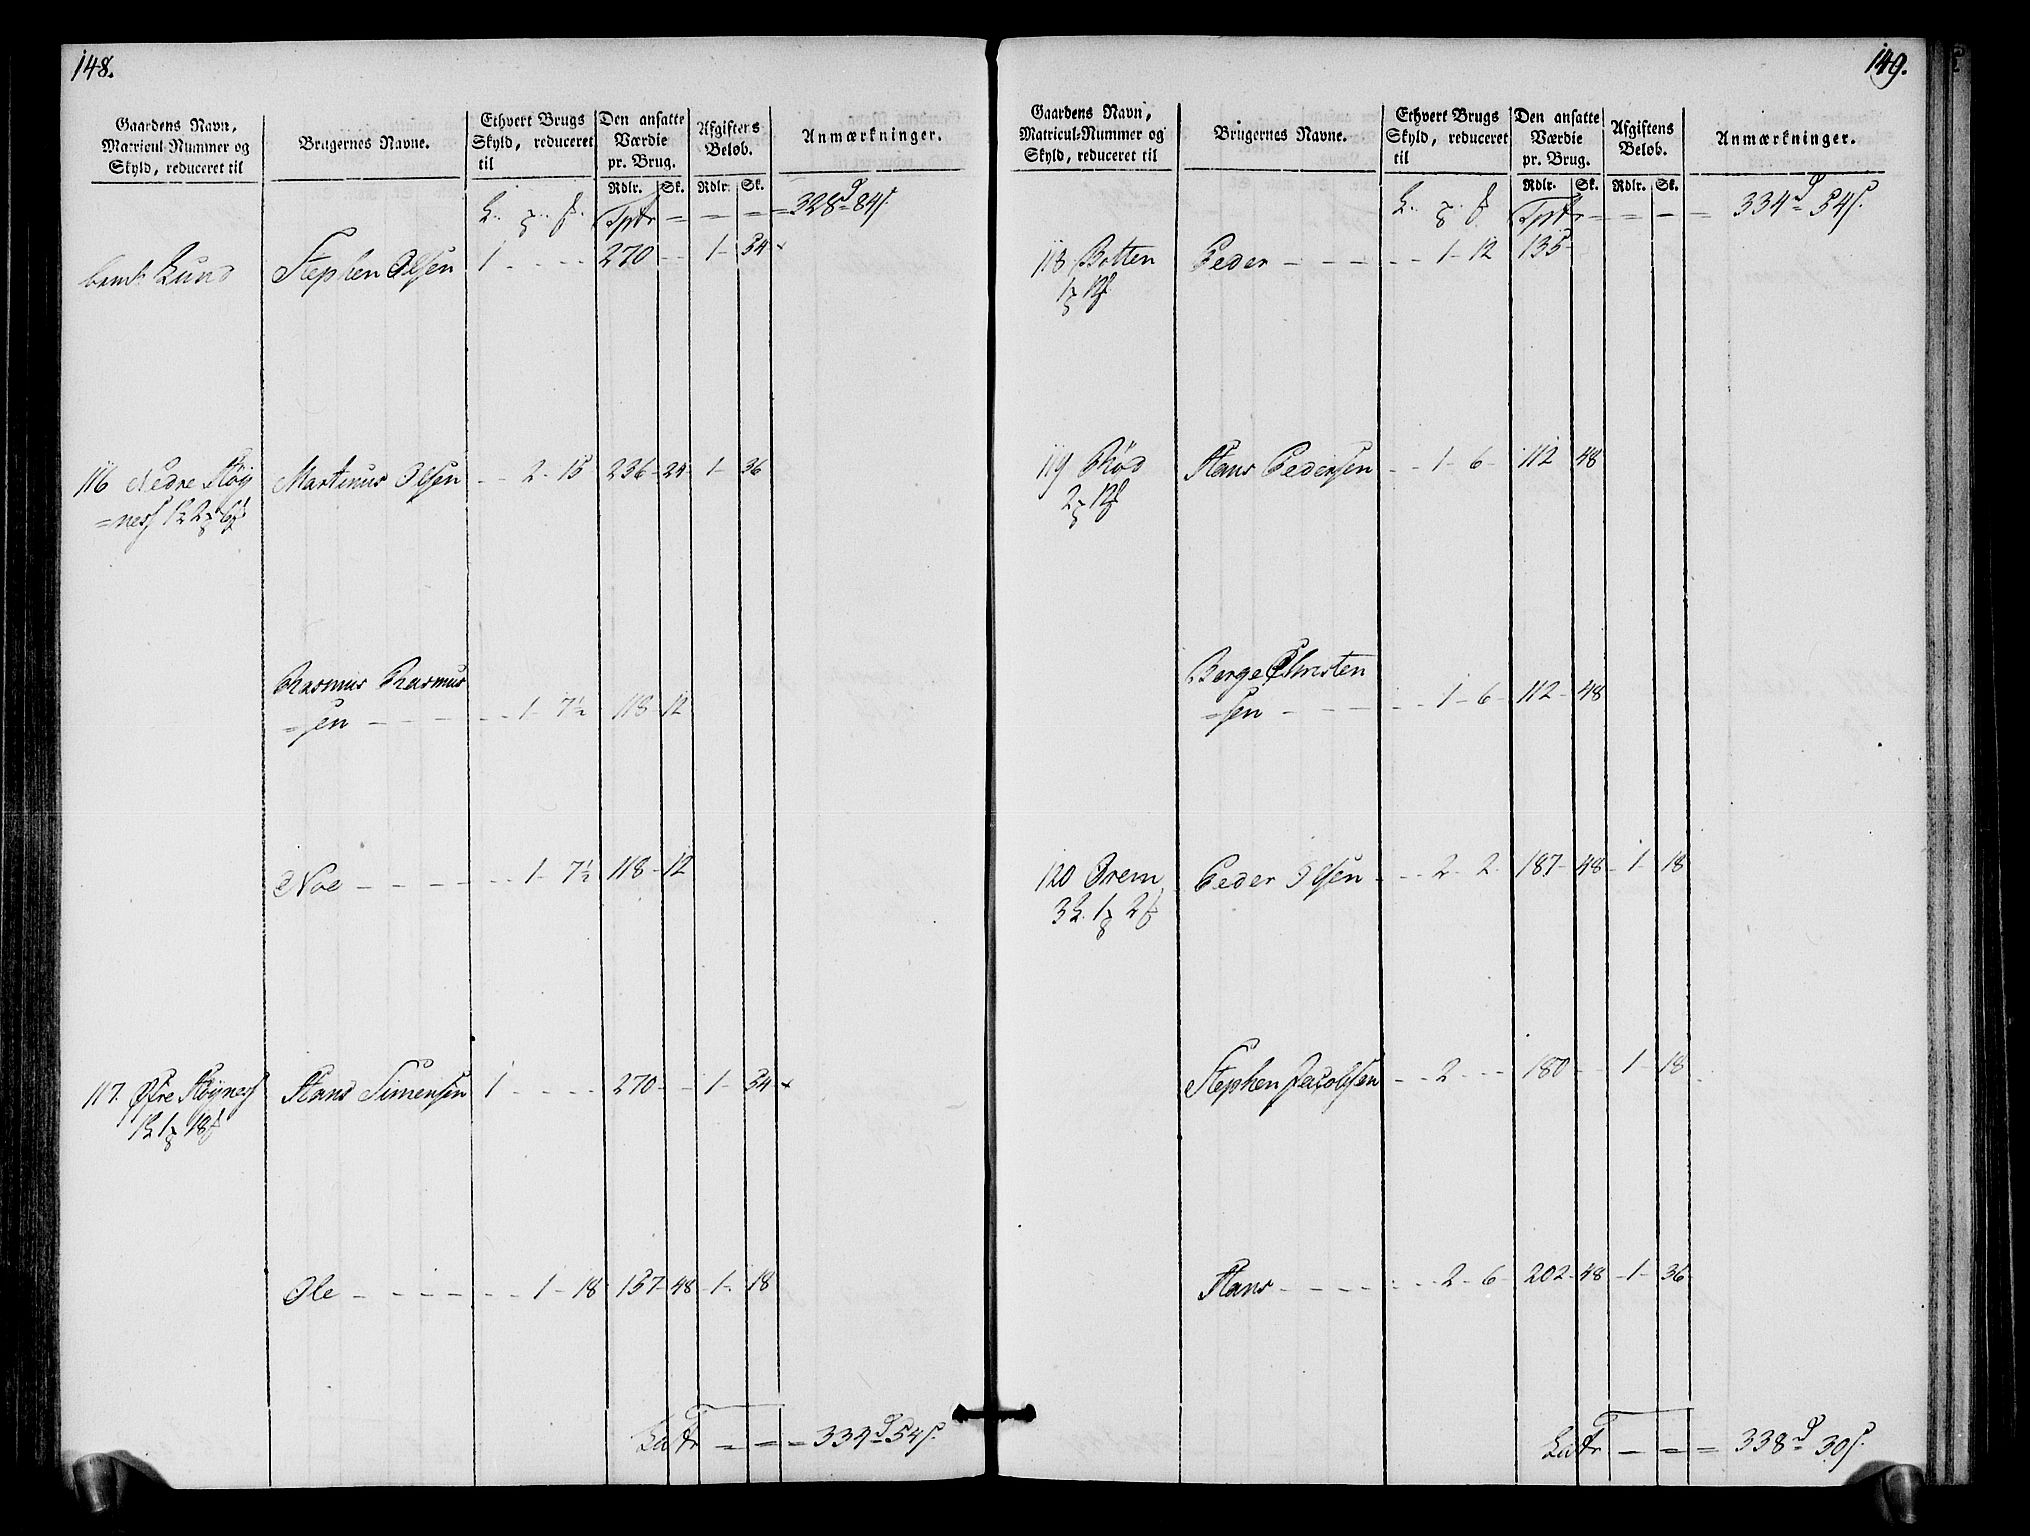 148.
Gaardens Navn,
Matricul-Nummer og
Skyld, reduceret til
Brugernes Navne.
Ethvert Brugs
Skyld, reduceret
til
Den ansatte
Værdie
pr. Brug.
Rdlr. Sk.
Afgiftens
Beløb.
Rdlr. Sk.
Anmærkninger.
Tptr = = = = 328d 84s.
Lund Stephen Olsen 1 270 1 54
116 Nedre Høy Martinus Olsen 2 15 236 24 1 36
=ness
Rasmus Rasmus
=sen 1 7½ 118 12
Noe 1 7½ 118 12
117. Øfre Høyness Hans Simensen 1 270 1 54
Ole 1 18 157 48 1 18
Latr = = = 334d 54s.
149.
Gaardens Navn,
Matricul-Nummer og
Skyld, reduceret til
Brugernes Navne.
Ethvert Brugs
Skyld, reduceret
til
Den ansatte
Værdie
pr. Brug.
Rdlr. Sk.
Afgiftens
Beløb.
Rdlr. Sk.
Anmærkninger.
Tptr = = = = 334d 54s.
118 Botten Peder 1 12 135
119 Rød Hans Pedersen 1 6 112 48
Berge Christen
=sen 1 6 112 48
120 Brem Peder Olsen 2 2 187 48 1 18
Stephen Jacobsen 2 180 1 18
Hans 2 6 202 48 1 36
Latr = = = 338d 30s.